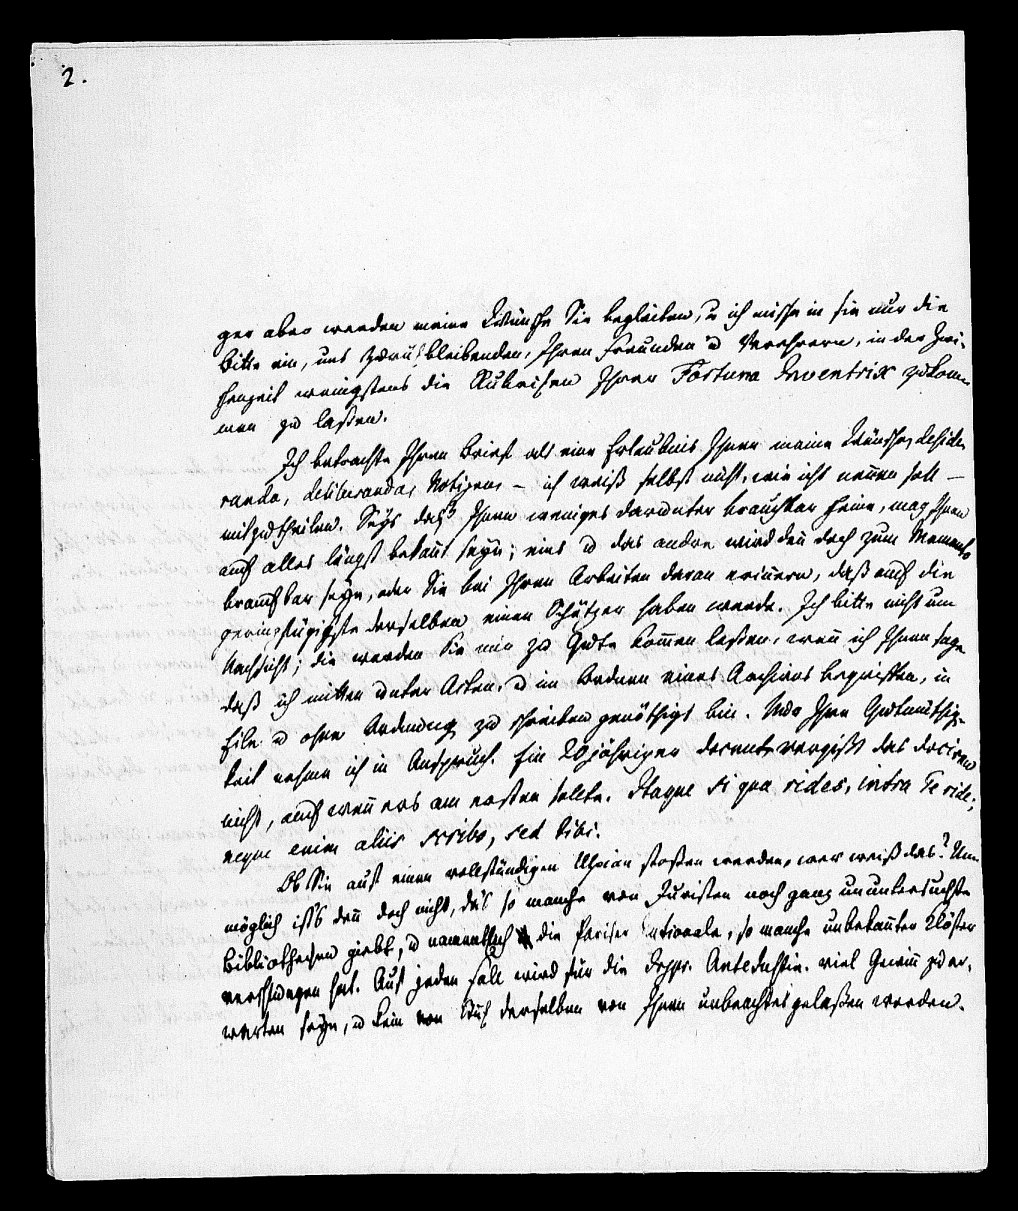 2.
ger aber werden meine Wünsche Sie begleiten, u ich mische in sie nur die
Bitte ein, uns zurükbleibenden, Ihren Freunden u Verehrern, in der Zwi-
schenzeit wenigstens die Rubriken Ihrer Fortuna Inventrix zukom-
men zu laßen.
Ich betrachte Ihren Brief als eine Erlaubnis Ihnen meine Wünsche, deside-
randa, deliberanda, Notizen, – ich weiß selbst nicht, wie ichs nennen soll –
mitzutheilen. Seys daß Ihnen weniges darunter brauchbar scheine, mag Ihnen
auch alles längst bekannt seyn; eins u das andre wird den̄ doch zum Memento
brauchbar seyn, oder Sie bei Ihren Arbeiten daran erin̄ern, daß auch die
geringfügigste derselben einen Schätzer haben werde. Ich bitte nicht um
Nachsicht; die werden Sie mir zu Gute kom̄en laßen, wen̄ ich Ihnen sage
daß ich mitten unter Akten, u im Ordnen eines Archives begriffen, in
Eile u ohne Ordnung zu schreiben genöthigt bin. Nur Ihre Gutmüthig-
keit nehme ich in Anspruch. Ein 20jähriger docent vergißt das dociren
nicht, auch wen̄ ers am ersten sollte. Itaque si qua rides, intra Te ride;
neque enim aliis scribo, sed tibi.
Ob Sie auf einen vollständigen Ulpian stoßen werden, wer weiß das? Un-
möglich ists den̄ doch nicht, da's so manche von Juristen noch ganz ununtersuchte
Bibliotheken giebt, u namentlich die Pariser Nationale, so manche unbekan̄ter Klöster
verschlungen hat. Auf jeden Fall wird für die Dppr. AnteJustin. viel Gewin̄ zu er-
warten seyn, u kein von Buch derselben von Ihnen unbeachtet gelaßen werden.